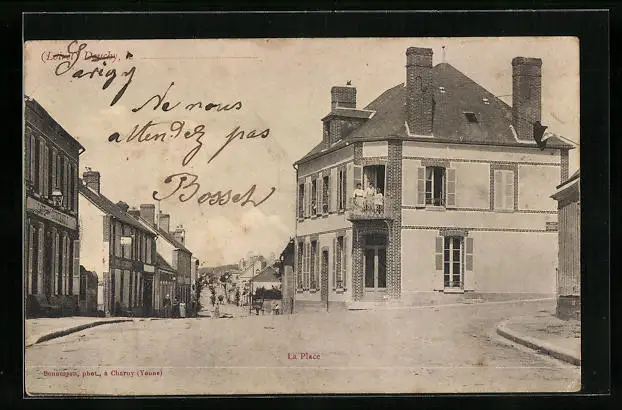 (Loiret) Douchy, le
Savigy
Ne nous
attendez pas
Bosset
La Place
phot., à Charny (Yonne)